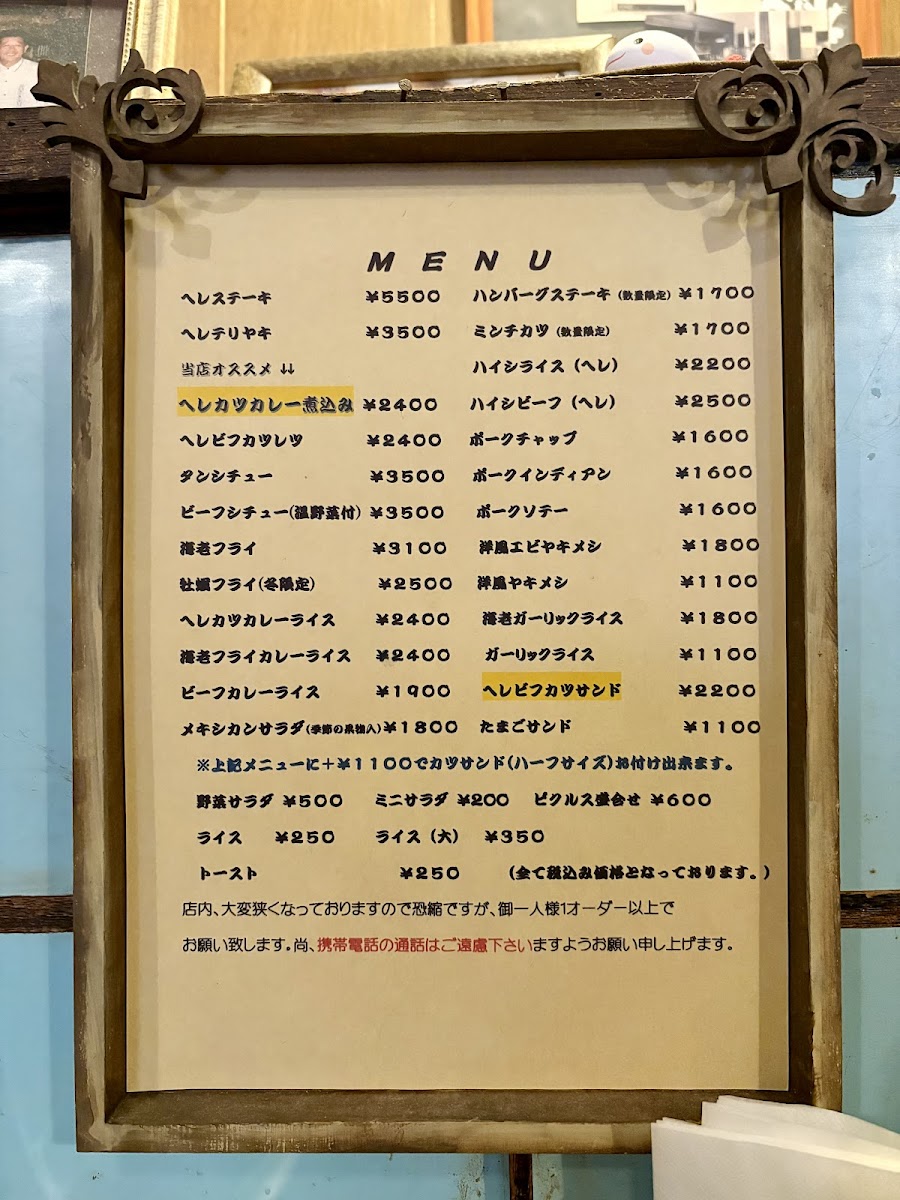 MENU
ヘレステーキ ¥5500 ハンバーグステーキ(数量限定) ¥1700
ヘレテリヤキ ¥3500 ミンチカツ(数量限定) ¥1700
当店オススメ ↓↓ ハイシライス(ヘレ) ¥2200
ヘレカツカレー煮込み ¥2400 ハイシビーフ(ヘレ) ¥2500
ヘレビフカツレツ ¥2400 ポークチャップ ¥1600
タンシチュー ¥3500 ポークインディアン ¥1600
ビーフシチュー(温野菜付) ¥3500 ポークソテー ¥1600
海老フライ ¥3100 洋風エビヤキメシ ¥1800
牡蠣フライ(冬限定) ¥2500 洋風ヤキメシ ¥1100
ヘレカツカレーライス ¥2400 海老ガーリックライス ¥1800
海老フライカレーライス ¥2400 ガーリックライス ¥1100
ビーフカレーライス ¥1900 ヘレビフカツサンド ¥2200
メキシカンサラダ(季節の果物入) ¥1800 たまごサンド ¥1100
※上記メニューに+¥1100でカツサンド(ハーフサイズ)お付け出来ます。
野菜サラダ ¥500 ミニサラダ ¥200 ピクルス盛合せ ¥600
ライス ¥250 ライス(大) ¥350
トースト ¥250 (全て税込み価格となっております。)
店内、大変狭くなっておりますので恐縮ですが、御一人様1オーダー以上で
お願い致します。尚、携帯電話の通話はご遠慮下さいますようお願い申し上げます。